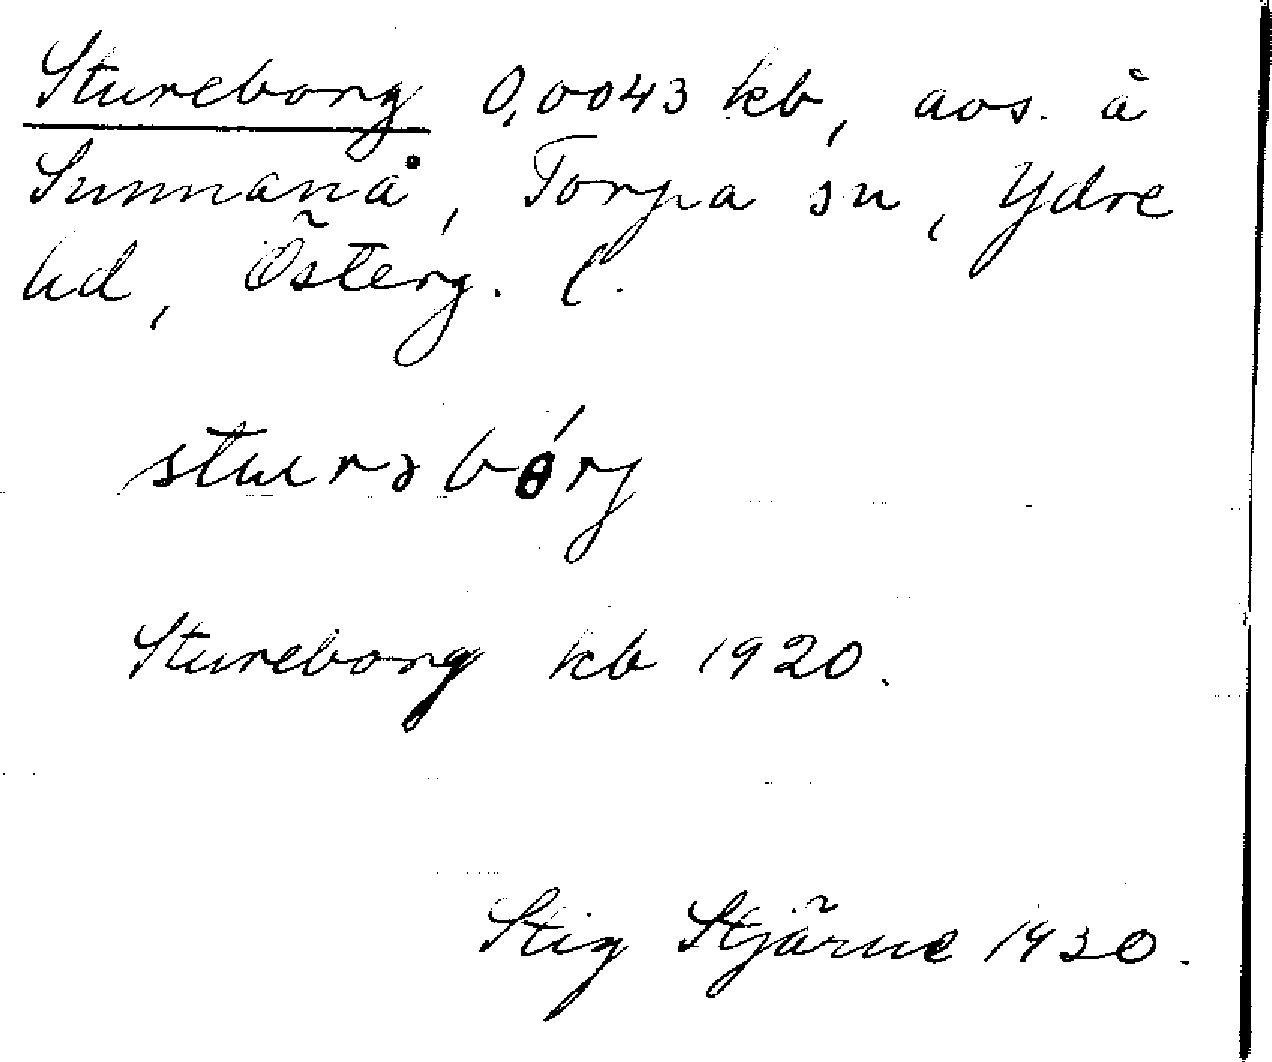 Stureborg 0,0043 kb, avs. å
Sunnanå, Torpa sn, Ydre
hd, Österg. l.
sturəbɵ́rj
Stureborg kb 1920.
Stig Stjärne 1930.